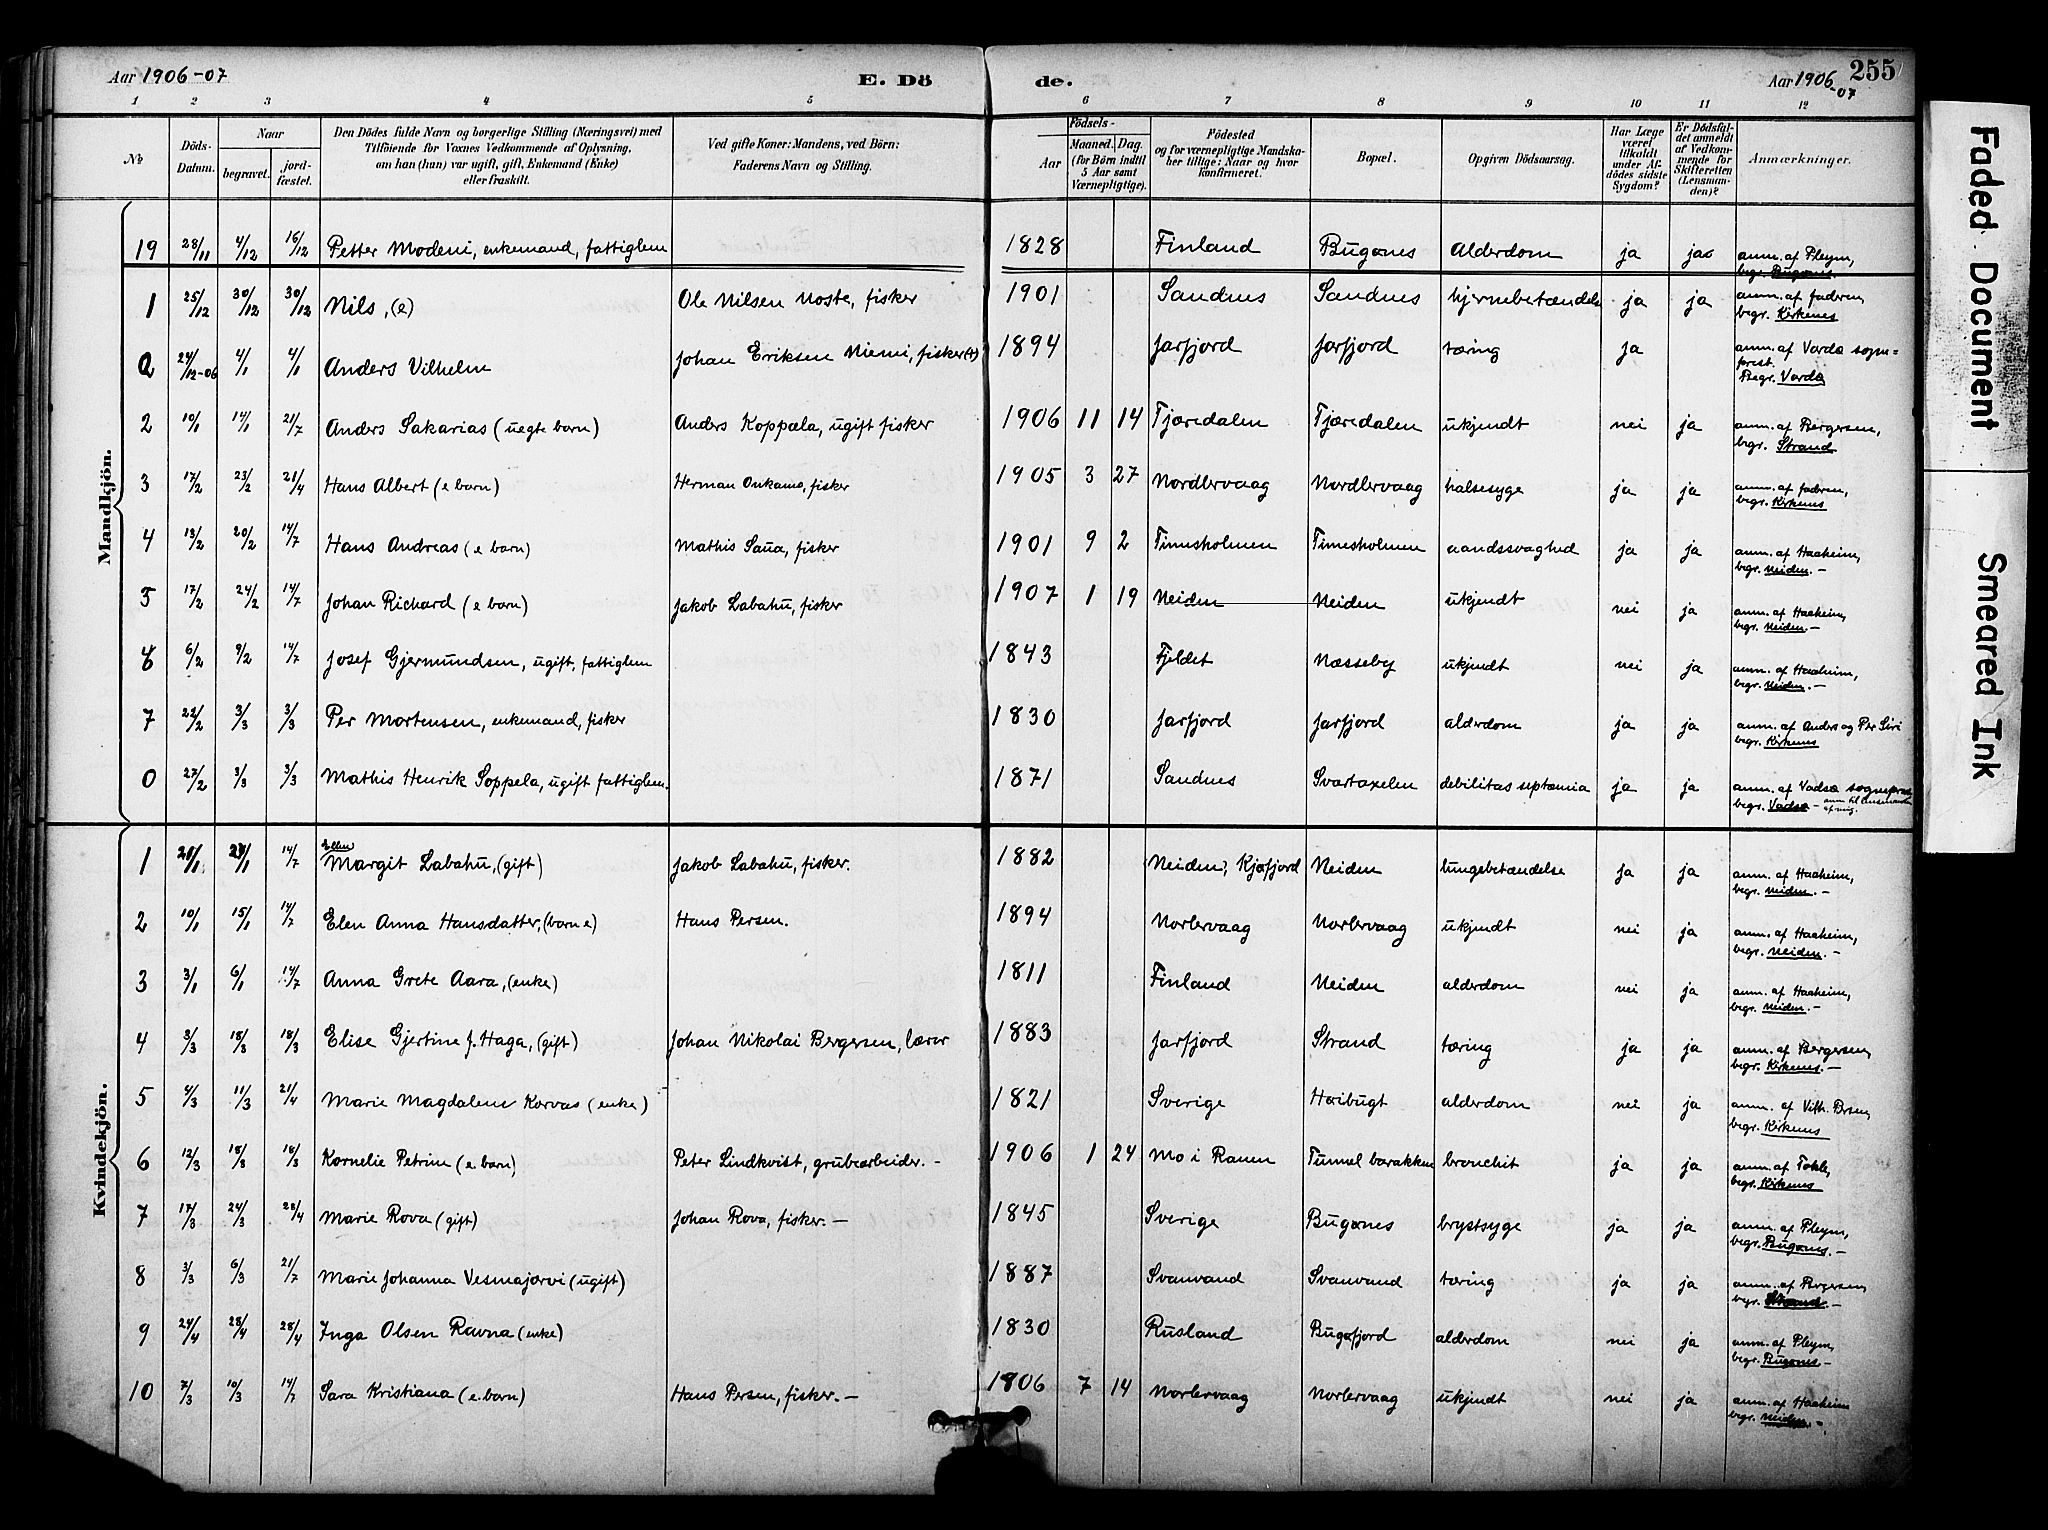 Aar 1906-07 E. Dö de. Aar 1906-07 255
1 2 3 4 5 6 7 8 9 10 11 12
№ Döds-Datum. Naar begravet. jord-fæstet. Den Dödes fulde Navn og borgerlige Stilling (Næringsvei) med Tilföiende for Voxnes Vedkommende af Oplysning, om han (hun) var ugift, gift, Enkemand (Enke) eller fraskilt. Ved gifte Koner: Mandens, ved Börn: Faderens Navn og Stilling. Födsels- Aar Maaned. Dag. (for Börn indtil 5 Aar samt Værnepligtige). Födested og for værnepligtige Mandskaber tillige: Naar og hvor konfirmeret. Bopæl. Opgiven Dödsaarsag. Har Læge været tilkaldt under Afdödes sidste Sygdom? Er Dödsfaldet anmeldt af Vedkommende for Skifteretten (Lensmanden)? Anmærkninger.
Mandkjön.
19 28/11 4/12 16/12 Petter Modeni, enkemand, fattiglem 1828 Finland Bugønes Alderdom ja ja anm. af Pleym, begr. Bugønes.
1 25/12 30/12 30/12 Nils, (e) Ole Nilsen Noste, fisker 1901 Sandnes Sandnes hjernebetændelse ja ja anm. af faderen, begr. Kirkenes
0 24/12-06 4/1 4/1 Anders Vilhelm Johan Eriksen Niemi, fisker 1894 Jarfjord Jarfjord tæring ja anm. af Vardø sogneprest. Begr. Vardø
2 10/1 14/1 21/7 Anders Sakarias (uegte barn) Anders Koppela, ugift fisker 1906 11 14 Tjæredalen Tjæredalen ukjendt nei ja anm. af Bergersen, begr. Strand
3 17/2 23/2 21/4 Hans Albert (e barn) Herman Onkamo, fisker 1905 3 27 Nordlervaag Nordlervaag halsesyge ja ja anm. af faderen, begr. Kirkenes
4 13/2 20/2 14/7 Hans Andreas (e barn) Mathis Saua, fisker 1901 9 2 Timesholmen Timesholmen aandssvaghed ja ja anm. af Haaheim, begr. Neiden. —
5 17/2 24/2 14/7 Johan Richard (e barn) Jakob Labahu, fisker 1907 1 19 Neiden Neiden ukjendt nei ja anm. af Haaheim, begr. Neiden. —
6 6/2 9/2 14/7 Josef Gjermundsen, ugift, fattiglem 1843 Fjeldet Næsseby ukjendt nei ja anm. af Haaheim, begr. Neiden. —
7 22/2 3/3 3/3 Per Mortensen, enkemand, fisker 1830 Jarfjord Jarfjord alderdom ja ja anm. af Anders og Per Siri begr. Kirkenes
0 27/2 3/3 3/3 Mathis Henrik Soppela, ugift fattiglem. 1871 Sandnes Svartaxelen debilitas septæmia ja ja anm. af Vadsø sogneprest begr. Vadsø — anm til lensmanden af mig.
Kvindekjön.
1 21/1 14/7 Ellen Margit Labahu, (gift) Jakob Labahu, fisker. 1882 Neiden, Kjøfjord Neiden lungebetændelse ja ja anm. af Haaheim, begr. Neiden. —
2 10/1 15/1 14/7 Elen Anna Hansdatter, (barn e) Hans Persen. 1894 Norlervaag Norlervaag ukjendt nei ja anm. af Haaheim, begr. Neiden. —
3 3/1 6/1 14/7 Anna Grete Aara, (enke) 1811 Finland Neiden alderdom nei ja anm. af Haaheim, begr. Neiden. —
4 3/3 18/3 18/3 Elise Gjertine f. Haga, (gift) Johan Nikolai Bergersen, lærer 1883 Jarfjord Strand tæring ja ja anm. af Bergersen, begr. Kirkenes. —
5 4/3 11/3 21/4 Marie Magdalene Korvas (enke) 1821 Sverige Høibugt alderdom nei ja anm. af Vilh. Brsen, begr. Kirkenes
6 12/3 18/3 18/3 Kornelie Petrine (e. barn) Peter Lindkvist, grubearbeider. — 1906 1 24 Mo i Ranen Tunnel barakken bronchit ja ja anm. af Tokle, begr. Kirkenes
7 17/3 24/3 28/4 Marie Rova (gift) Johan Rova, fisker. — 1845 Sverige Bugønes brystsyge ja ja anm. af Pleym, begr. Bugønes. —
8 3/3 6/3 21/7 Marie Johanna Vesmajarvi (ugift) 1887 Svanvand Svanvand tæring ja ja anm. af Brgersen, begr. Strand. —
9 24/4 28/4 28/4 Inga Olsen Ravna (enke) 1830 Rusland Bugøfjord alderdom nei ja anm. af Pleym, begr. Bugønes —
10 7/3 10/3 14/7 Sara Kristiana (e. barn) Hans Persen, fisker. — 1906 7 14 Norlervaag Norlervaag ukjendt nei ja anm. af Haaheim begr. Neiden. —
Faded Document
Smeared Ink